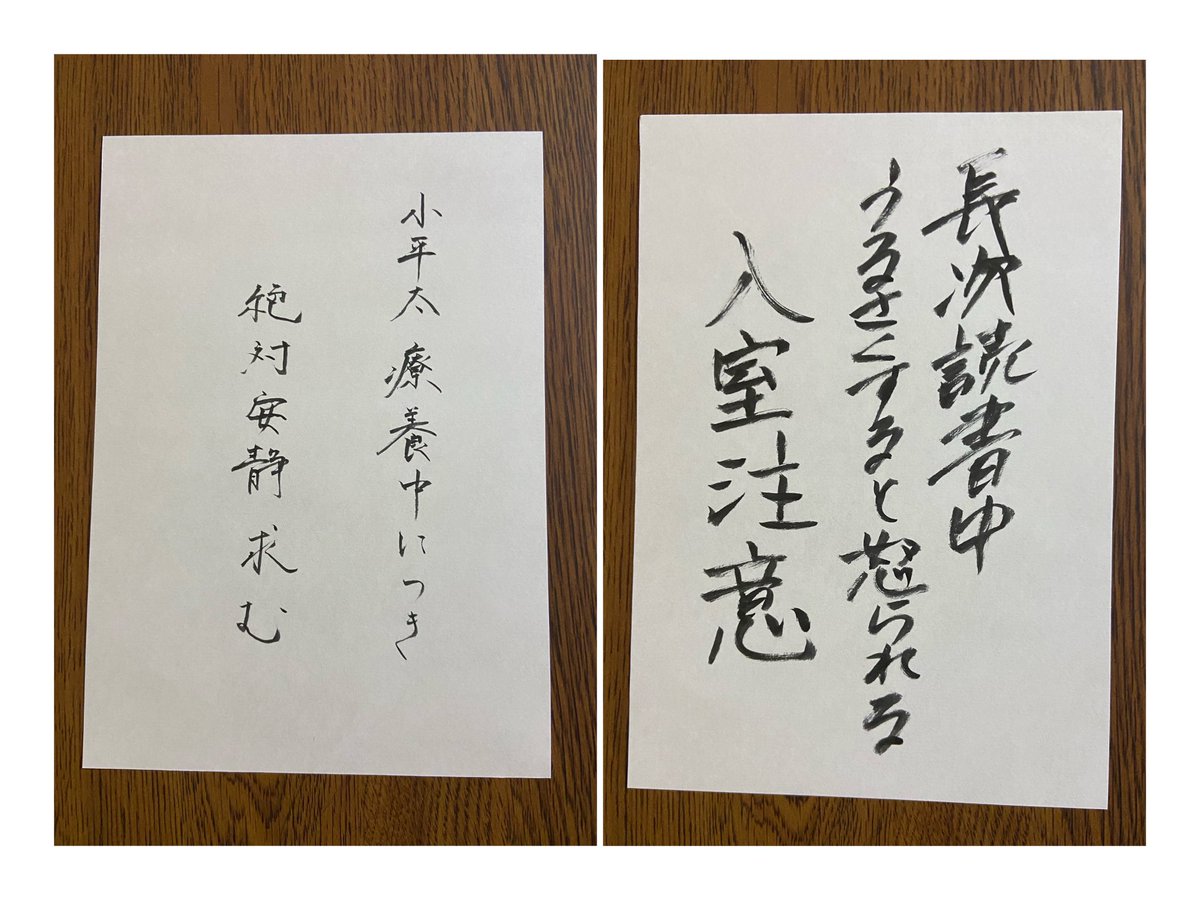 小平太 療養中につき
絶対安静 求む
長次読書中
うるさくすると怒られる
入室注意